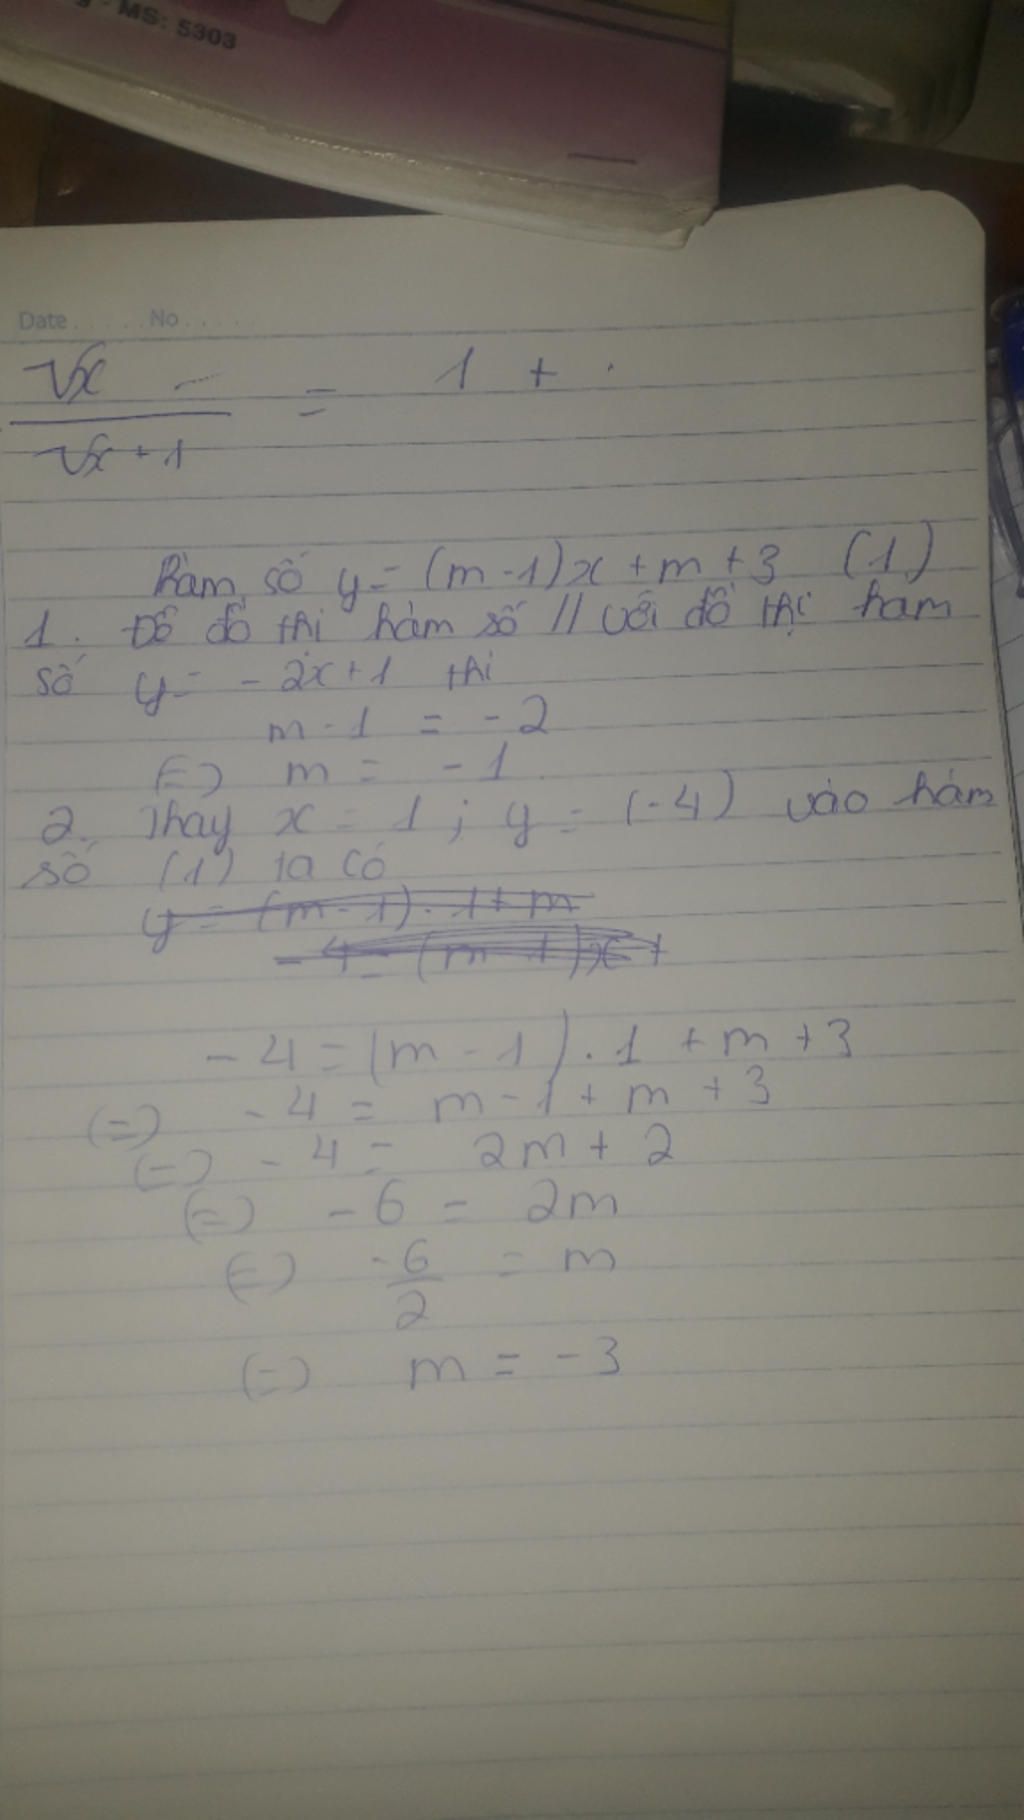 MS: 5303
Date ..... No .....
√x -
_____ = 1 + .
√x + 1
hàm số y = (m-1)x + m + 3 (1)
1. Để đồ thi hàm số // với đồ thị ham
số y = - 2x + 1 thì
m - 1 = - 2
(=) m = - 1
2. Thay x = 1 ; y = (-4) vào hám
số (1) ta có
y = (m-1). 1 + m
-4 = (m-1)x +
- 4 = (m - 1) . 1 + m + 3
(=) - 4 = m - 1 + m + 3
(=) - 4 = 2m + 2
(=) - 6 = 2m
(=) -6/2 = m
(=) m = - 3